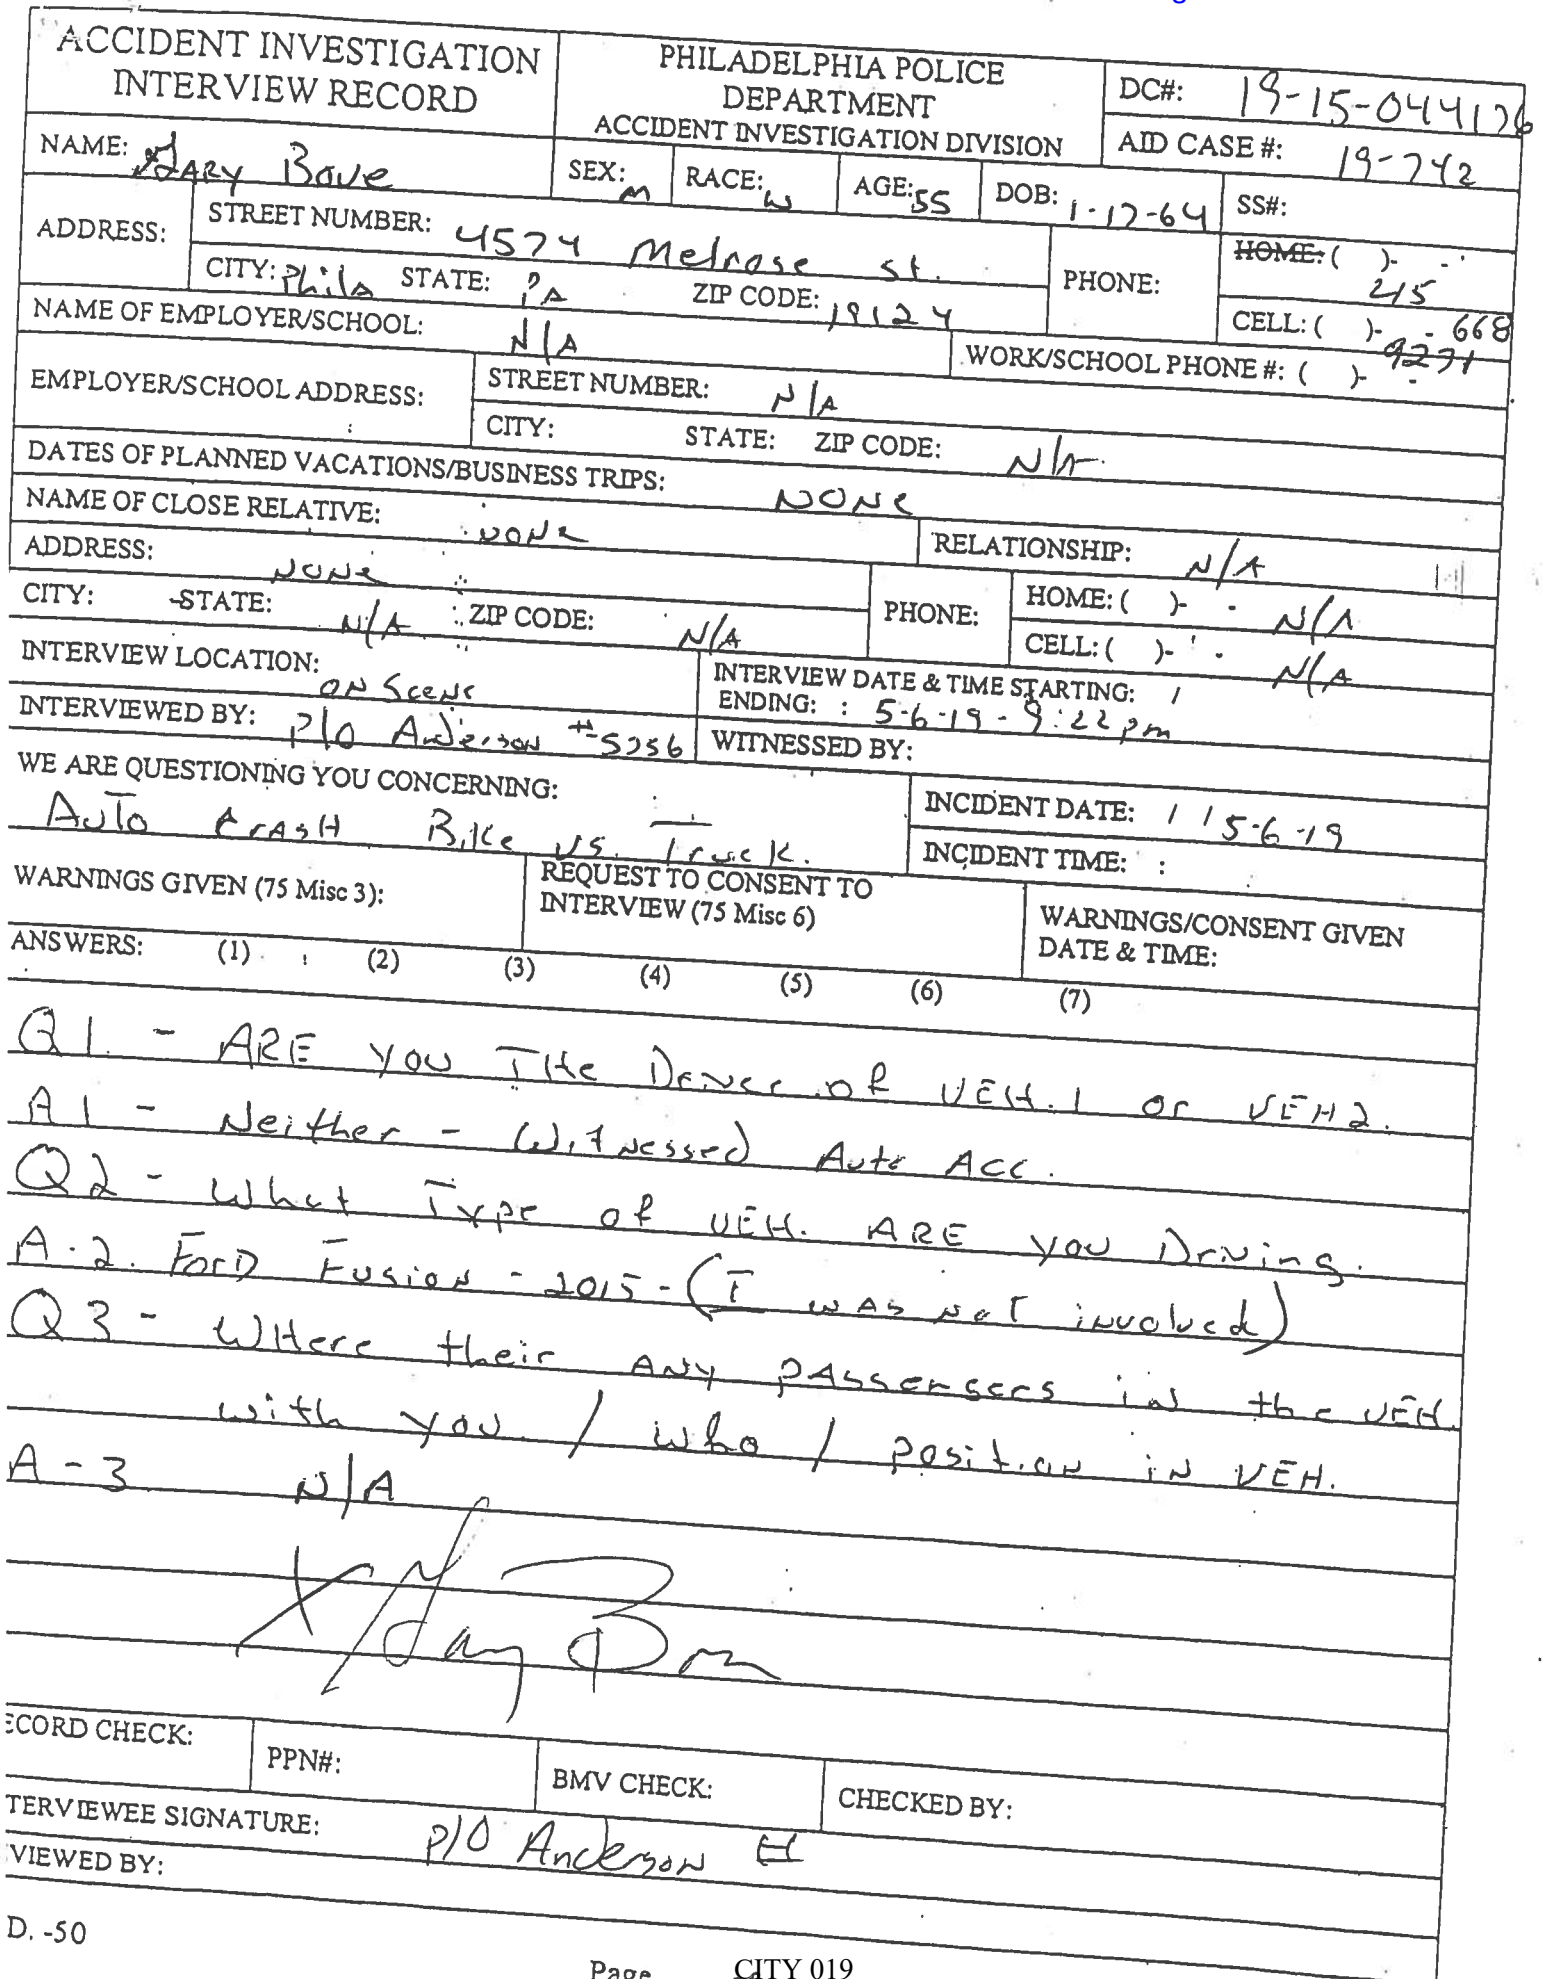 ACCIDENT INVESTIGATION
INTERVIEW RECORD
PHILADELPHIA POLICE
DEPARTMENT
ACCIDENT INVESTIGATION DIVISION
DC#: 19-15-044176
AID CASE #: 19-742
NAME: GARY Bove
SEX: M
RACE: W
AGE: 55
DOB: 1-17-64
SS#:
ADDRESS:
STREET NUMBER: 4574 Melrose St.
CITY: Phila STATE: PA ZIP CODE: 19124
PHONE:
HOME: ( )- -
215
CELL: ( )- - 668
9271
NAME OF EMPLOYER/SCHOOL: N/A
WORK/SCHOOL PHONE #: ( )- -
EMPLOYER/SCHOOL ADDRESS:
STREET NUMBER: N/A
CITY: STATE: ZIP CODE: N/A
DATES OF PLANNED VACATIONS/BUSINESS TRIPS: NONE
NAME OF CLOSE RELATIVE: NONE
RELATIONSHIP: N/A
ADDRESS: NONE
CITY: STATE: N/A ZIP CODE: N/A
PHONE:
HOME: ( )- - N/A
CELL: ( )- - N/A
INTERVIEW LOCATION: ON Scene
INTERVIEW DATE & TIME STARTING: /
ENDING: : 5-6-19 - 9:22 pm
INTERVIEWED BY: P/O Anderson #5256
WITNESSED BY:
WE ARE QUESTIONING YOU CONCERNING:
AuTo CrasH Bike vs. Truck.
INCIDENT DATE: / / 5-6-19
INCIDENT TIME: :
WARNINGS GIVEN (75 Misc 3):
REQUEST TO CONSENT TO
INTERVIEW (75 Misc 6)
WARNINGS/CONSENT GIVEN
DATE & TIME:
ANSWERS: (1) (2) (3) (4) (5) (6) (7)
Q1. - ARE you THe Driver of VEH.1 or VEH2.
A1 - Neither - Witnessed Auto Acc.
Q2 - What Type of VEH. ARE you Driving.
A-2. ForD Fusion - 2015 - (I was not involved)
Q3 - WHere their ANY PAssengers in the VEH.
with you / who / position in VEH.
A-3 N/A
X Gary Bove
ECORD CHECK:
PPN#:
BMV CHECK:
CHECKED BY:
TERVIEWEE SIGNATURE: P/O Anderson
VIEWED BY:
D. -50
Page
CITY 019